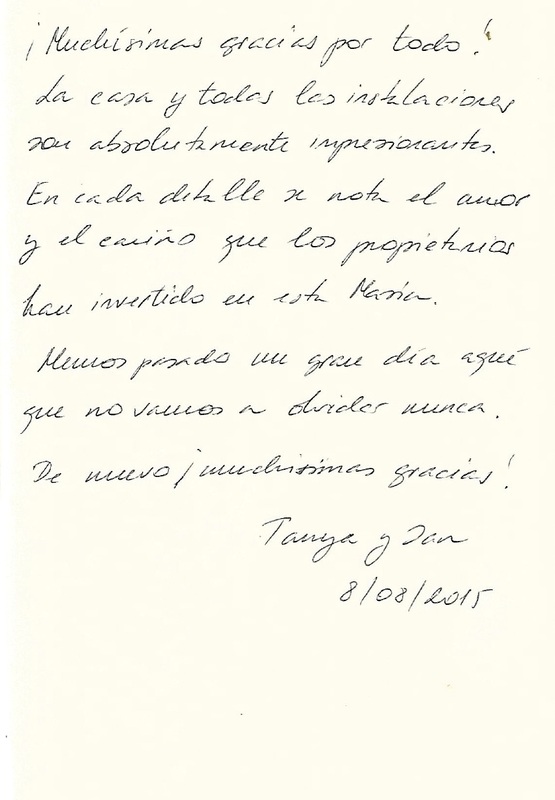 ¡Muchísimas gracias por todo!
La casa y todas las instalaciones
son absolutamente impresionantes.
En cada detalle se nota el amor
y el cariño que los propietarios
han invertido en esta Masía.
Hemos pasado un gran día aquí
que no vamos a olvidar nunca.
De nuevo ¡muchísimas gracias!
Tanya y Jan
8/08/2015